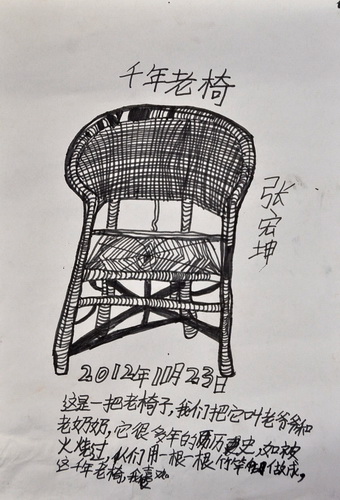 千年老椅
张宏坤
2012年11月23日
这是一把老椅子,我们把它叫老爷爷和
老奶奶,它很多年的历史,如被
火烧过,他们用一根一根竹做成,
这千年老椅,我喜欢